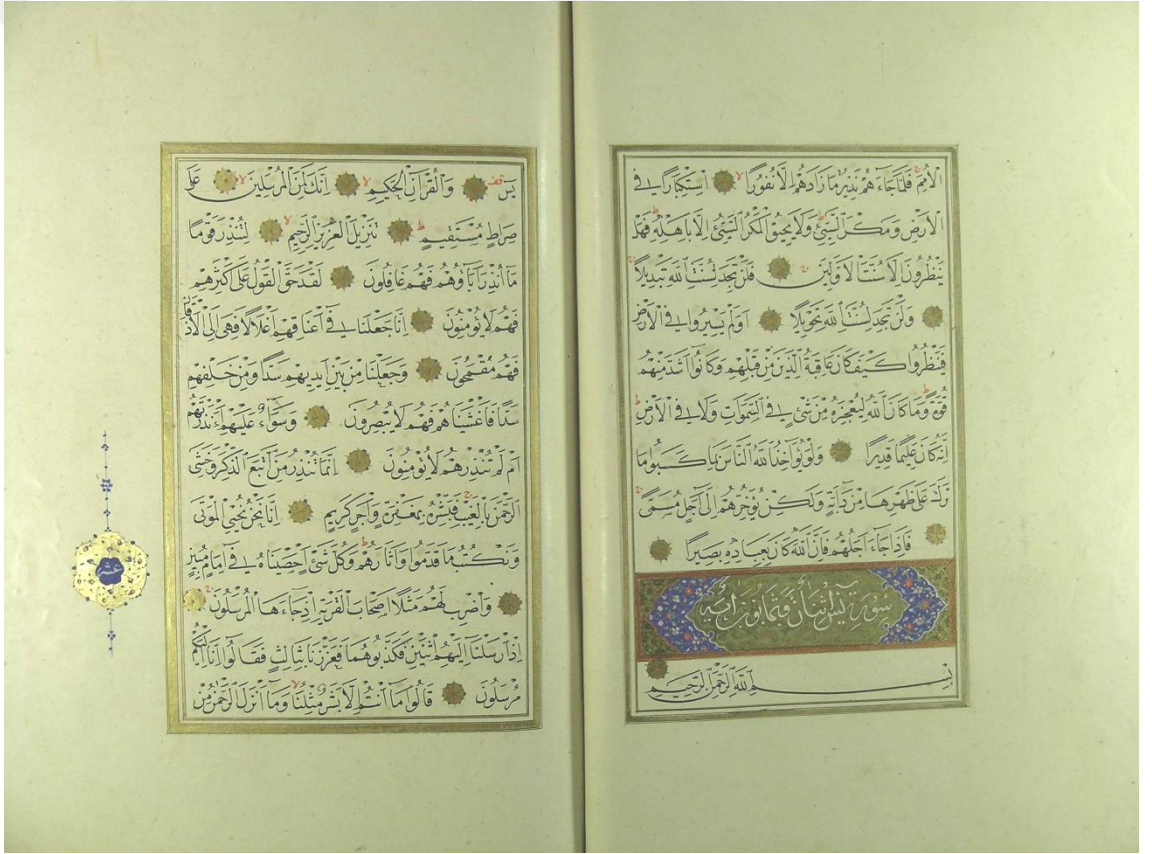 الْاُمَمِ فَلَمَّا جَاءَهُمْ نَذِيرٌ مَا زَادَهُمْ اِلَّا نُفُورًا اِسْتِكْبَارًا فِى
الْاَرْضِ وَمَكْرَ السَّيِّئِ وَلَا يَحِيقُ الْمَكْرُ السَّيِّئُ اِلَّا بِاَهْلِهِ فَهَلْ
يَنْظُرُونَ اِلَّا سُنَّتَ الْاَوَّلِينَ فَلَنْ تَجِدَ لِسُنَّتِ اللّٰهِ تَبْدِيلًا
وَلَنْ تَجِدَ لِسُنَّتِ اللّٰهِ تَحْوِيلًا اَوَلَمْ يَسِيرُوا فِى الْاَرْضِ
فَيَنْظُرُوا كَيْفَ كَانَ عَاقِبَةُ الَّذِينَ مِنْ قَبْلِهِمْ وَكَانُوا اَشَدَّ مِنْهُمْ
قُوَّةً وَمَا كَانَ اللّٰهُ لِيُعْجِزَهُ مِنْ شَىْءٍ فِى السَّمٰوَاتِ وَلَا فِى الْاَرْضِ
اِنَّهُ كَانَ عَلِيمًا قَدِيرًا وَلَوْ يُؤَاخِذُ اللّٰهُ النَّاسَ بِمَا كَسَبُوا مَا
تَرَكَ عَلٰى ظَهْرِهَا مِنْ دَابَّةٍ وَلٰكِنْ يُؤَخِّرُهُمْ اِلٰى اَجَلٍ مُسَمًّى
فَاِذَا جَاءَ اَجَلُهُمْ فَاِنَّ اللّٰهَ كَانَ بِعِبَادِهِ بَصِيرًا
سورة يس ثلث وثمانون آية
بِسْمِ اللّٰهِ الرَّحْمٰنِ الرَّحِيمِ
يٰسٓ وَالْقُرْاٰنِ الْحَكِيمِ اِنَّكَ لَمِنَ الْمُرْسَلِينَ عَلٰى
صِرَاطٍ مُسْتَقِيمٍ تَنْزِيلَ الْعَزِيزِ الرَّحِيمِ لِتُنْذِرَ قَوْمًا
مَا اُنْذِرَ اٰبَاؤُهُمْ فَهُمْ غَافِلُونَ لَقَدْ حَقَّ الْقَوْلُ عَلٰى اَكْثَرِهِمْ
فَهُمْ لَا يُؤْمِنُونَ اِنَّا جَعَلْنَا فِى اَعْنَاقِهِمْ اَغْلَالًا فَهِىَ اِلَى الْاَذْقَانِ
فَهُمْ مُقْمَحُونَ وَجَعَلْنَا مِنْ بَيْنِ اَيْدِيهِمْ سَدًّا وَمِنْ خَلْفِهِمْ
سَدًّا فَاَغْشَيْنَاهُمْ فَهُمْ لَا يُبْصِرُونَ وَسَوَاءٌ عَلَيْهِمْ ءَاَنْذَرْتَهُمْ
اَمْ لَمْ تُنْذِرْهُمْ لَا يُؤْمِنُونَ اِنَّمَا تُنْذِرُ مَنِ اتَّبَعَ الذِّكْرَ وَخَشِىَ
الرَّحْمٰنَ بِالْغَيْبِ فَبَشِّرْهُ بِمَغْفِرَةٍ وَاَجْرٍ كَرِيمٍ اِنَّا نَحْنُ نُحْيِى الْمَوْتٰى
وَنَكْتُبُ مَا قَدَّمُوا وَاٰثَارَهُمْ وَكُلَّ شَىْءٍ اَحْصَيْنَاهُ فِى اِمَامٍ مُبِينٍ
وَاضْرِبْ لَهُمْ مَثَلًا اَصْحَابَ الْقَرْيَةِ اِذْ جَاءَهَا الْمُرْسَلُونَ
اِذْ اَرْسَلْنَا اِلَيْهِمُ اثْنَيْنِ فَكَذَّبُوهُمَا فَعَزَّزْنَا بِثَالِثٍ فَقَالُوا اِنَّا اِلَيْكُمْ
مُرْسَلُونَ قَالُوا مَا اَنْتُمْ اِلَّا بَشَرٌ مِثْلُنَا وَمَا اَنْزَلَ الرَّحْمٰنُ مِنْ